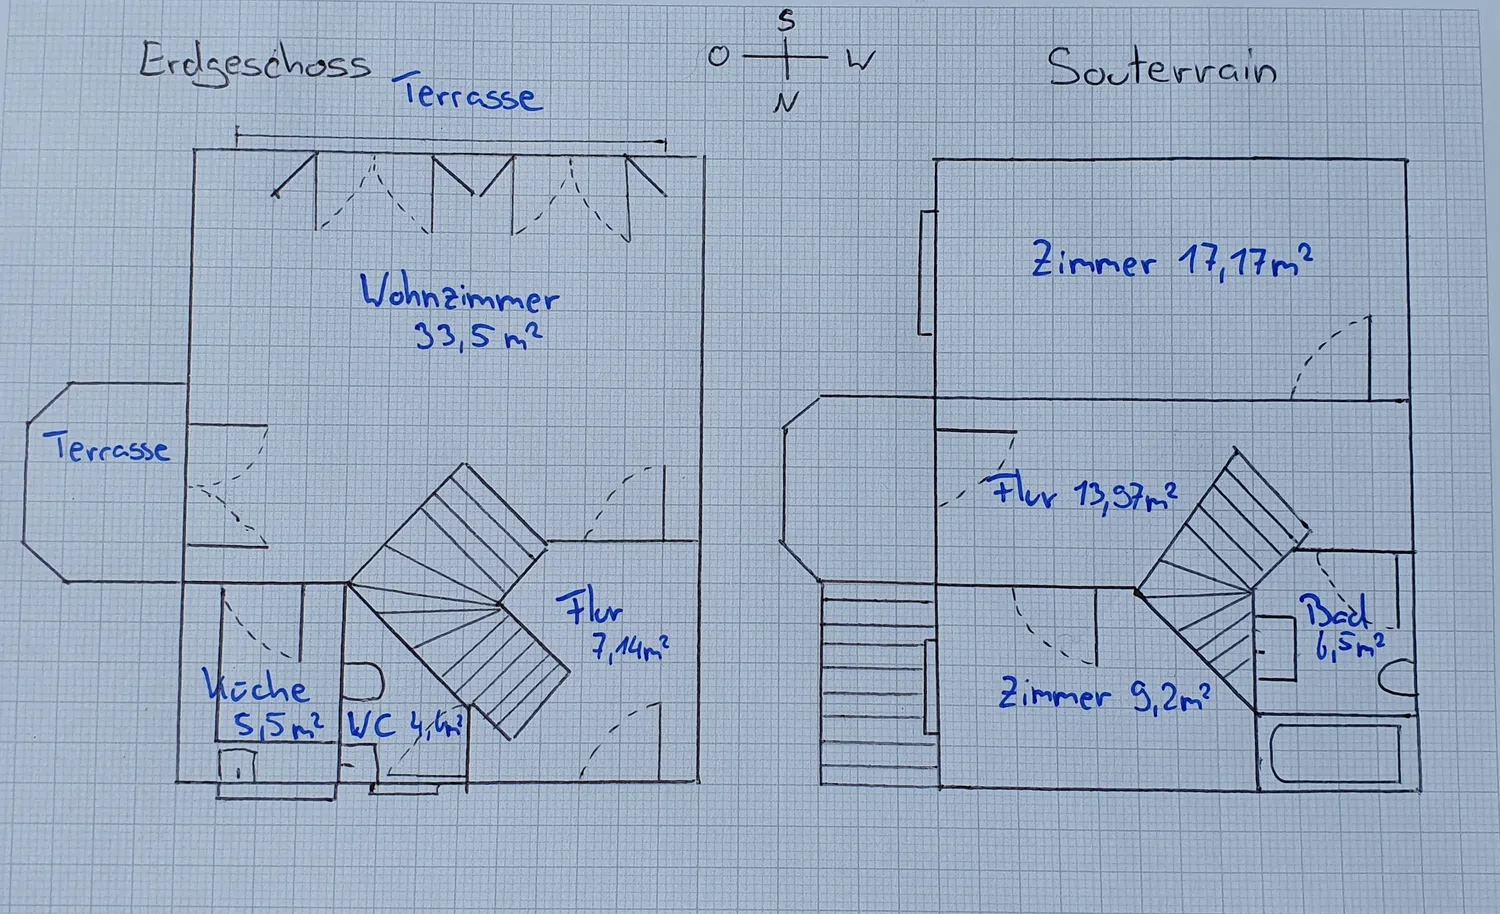 Erdgeschoss
Terrasse
S
O W
N
Souterrain
Wohnzimmer
33,5 m²
Terrasse
Flur
7,14m²
Küche
5,5m²
WC
Zimmer 17,17m²
Flur 13,97m²
Bad
6,5m²
Zimmer 9,2m²